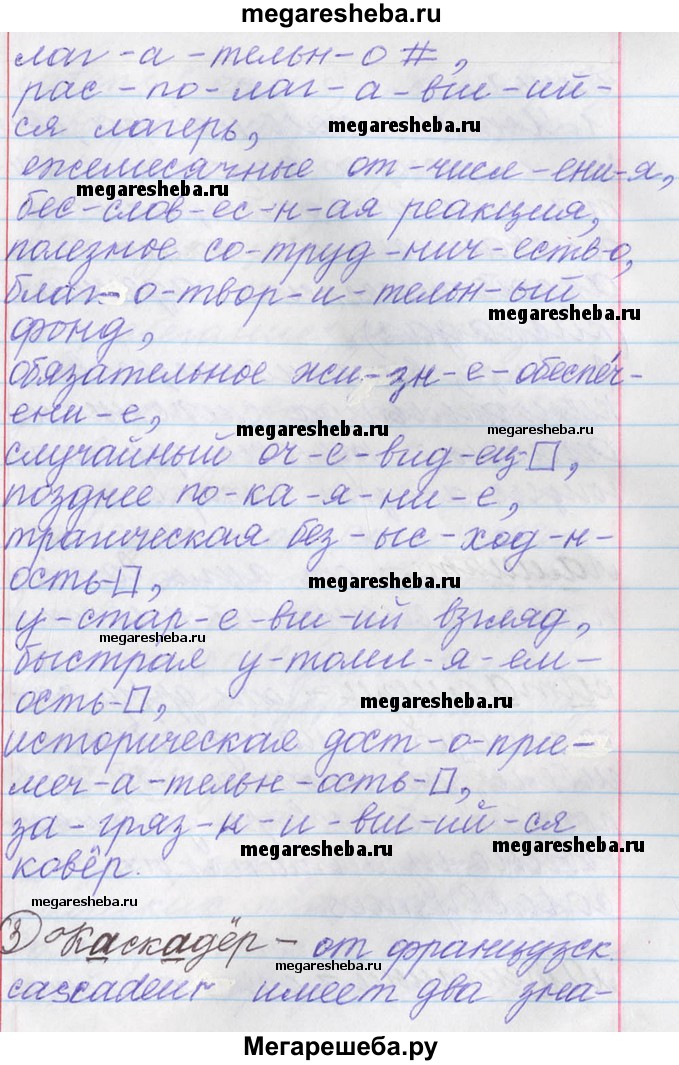 megaresheba.ru
лаг-а-тельн-о #,
рас-по-лаг-а-вш-ий-
ся лагерь,
megaresheba.ru
ежемесячные от-числ-ени-я,
megaresheba.ru
бес-слов-ес-н-ая реакция,
полезное со-труд-нич-еств-о,
благ-о-твор-и-тельн-ый
megaresheba.ru
фонд,
обязательное жи-зн-е-обеспеч-
ени-е,
megaresheba.ru
megaresheba.ru
случайный оч-е-вид-ец-□,
позднее по-ка-я-ни-е,
трагическая без-ыс-ход-н-
ость-□,
megaresheba.ru
у-стар-е-вш-ий взгляд,
megaresheba.ru
быстрая у-томл-я-ем-
ость-□,
megaresheba.ru
историческая дост-о-при-
меч-а-тельн-ость-□,
за-гряз-н-и-вш-ий-ся
megaresheba.ru
megaresheba.ru
ковёр.
megaresheba.ru
3) Каскадёр - от французск.
megaresheba.ru
cascadeur имеет два зна-
Мегарешеба.ру